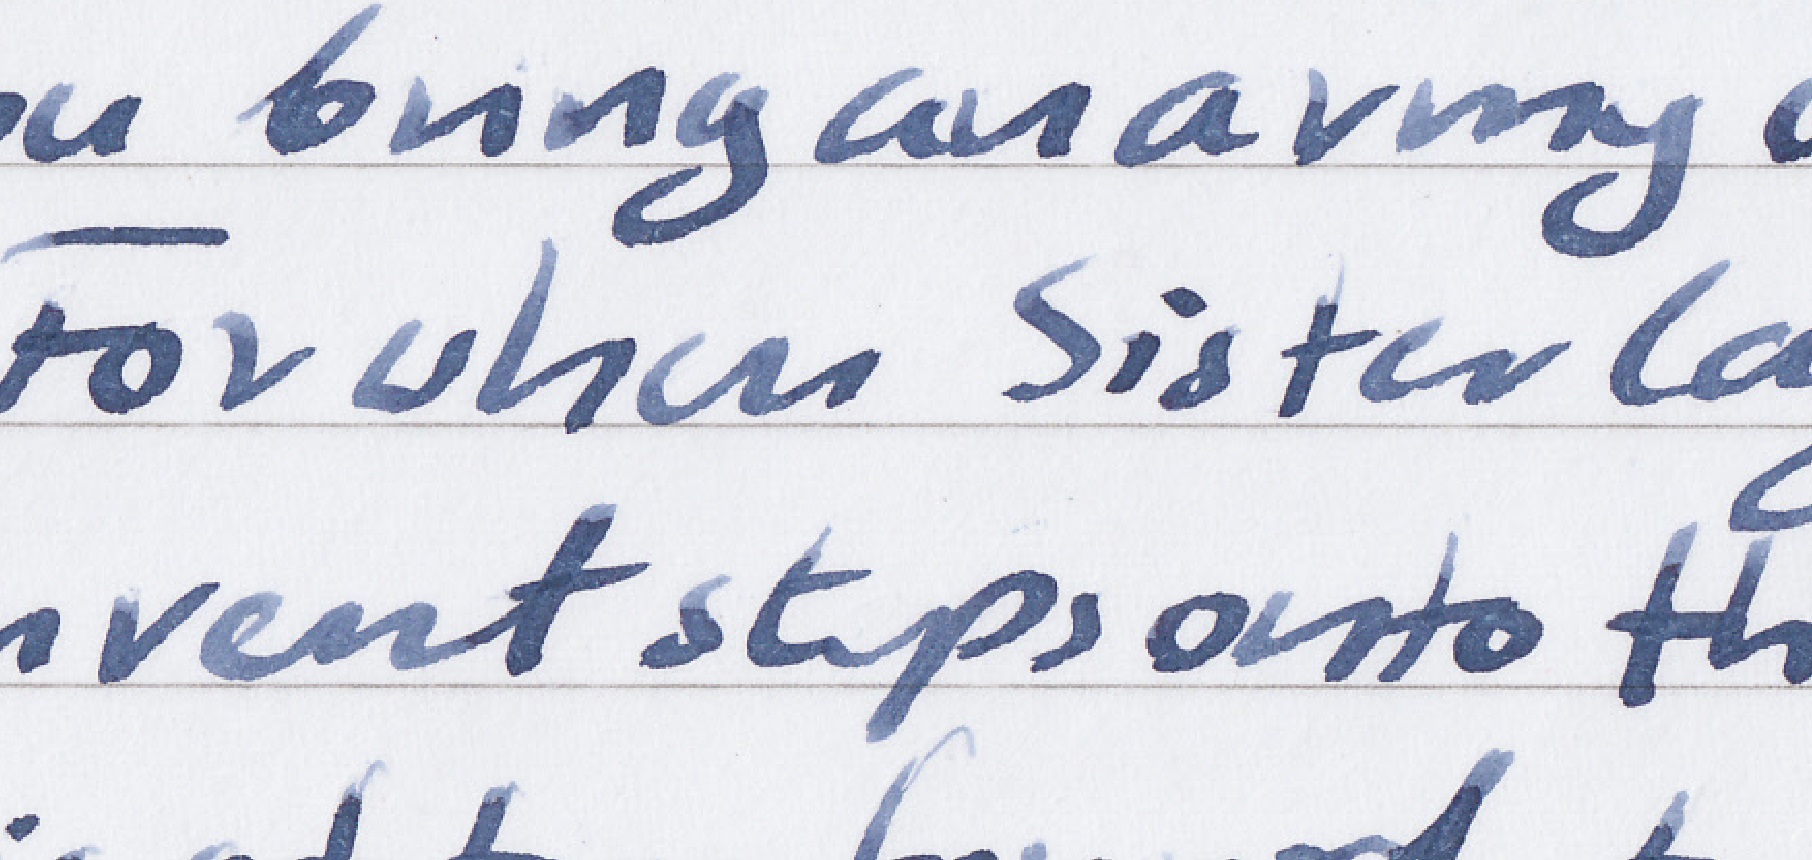 ou bring an army
For when Sister
nvent steps onto th